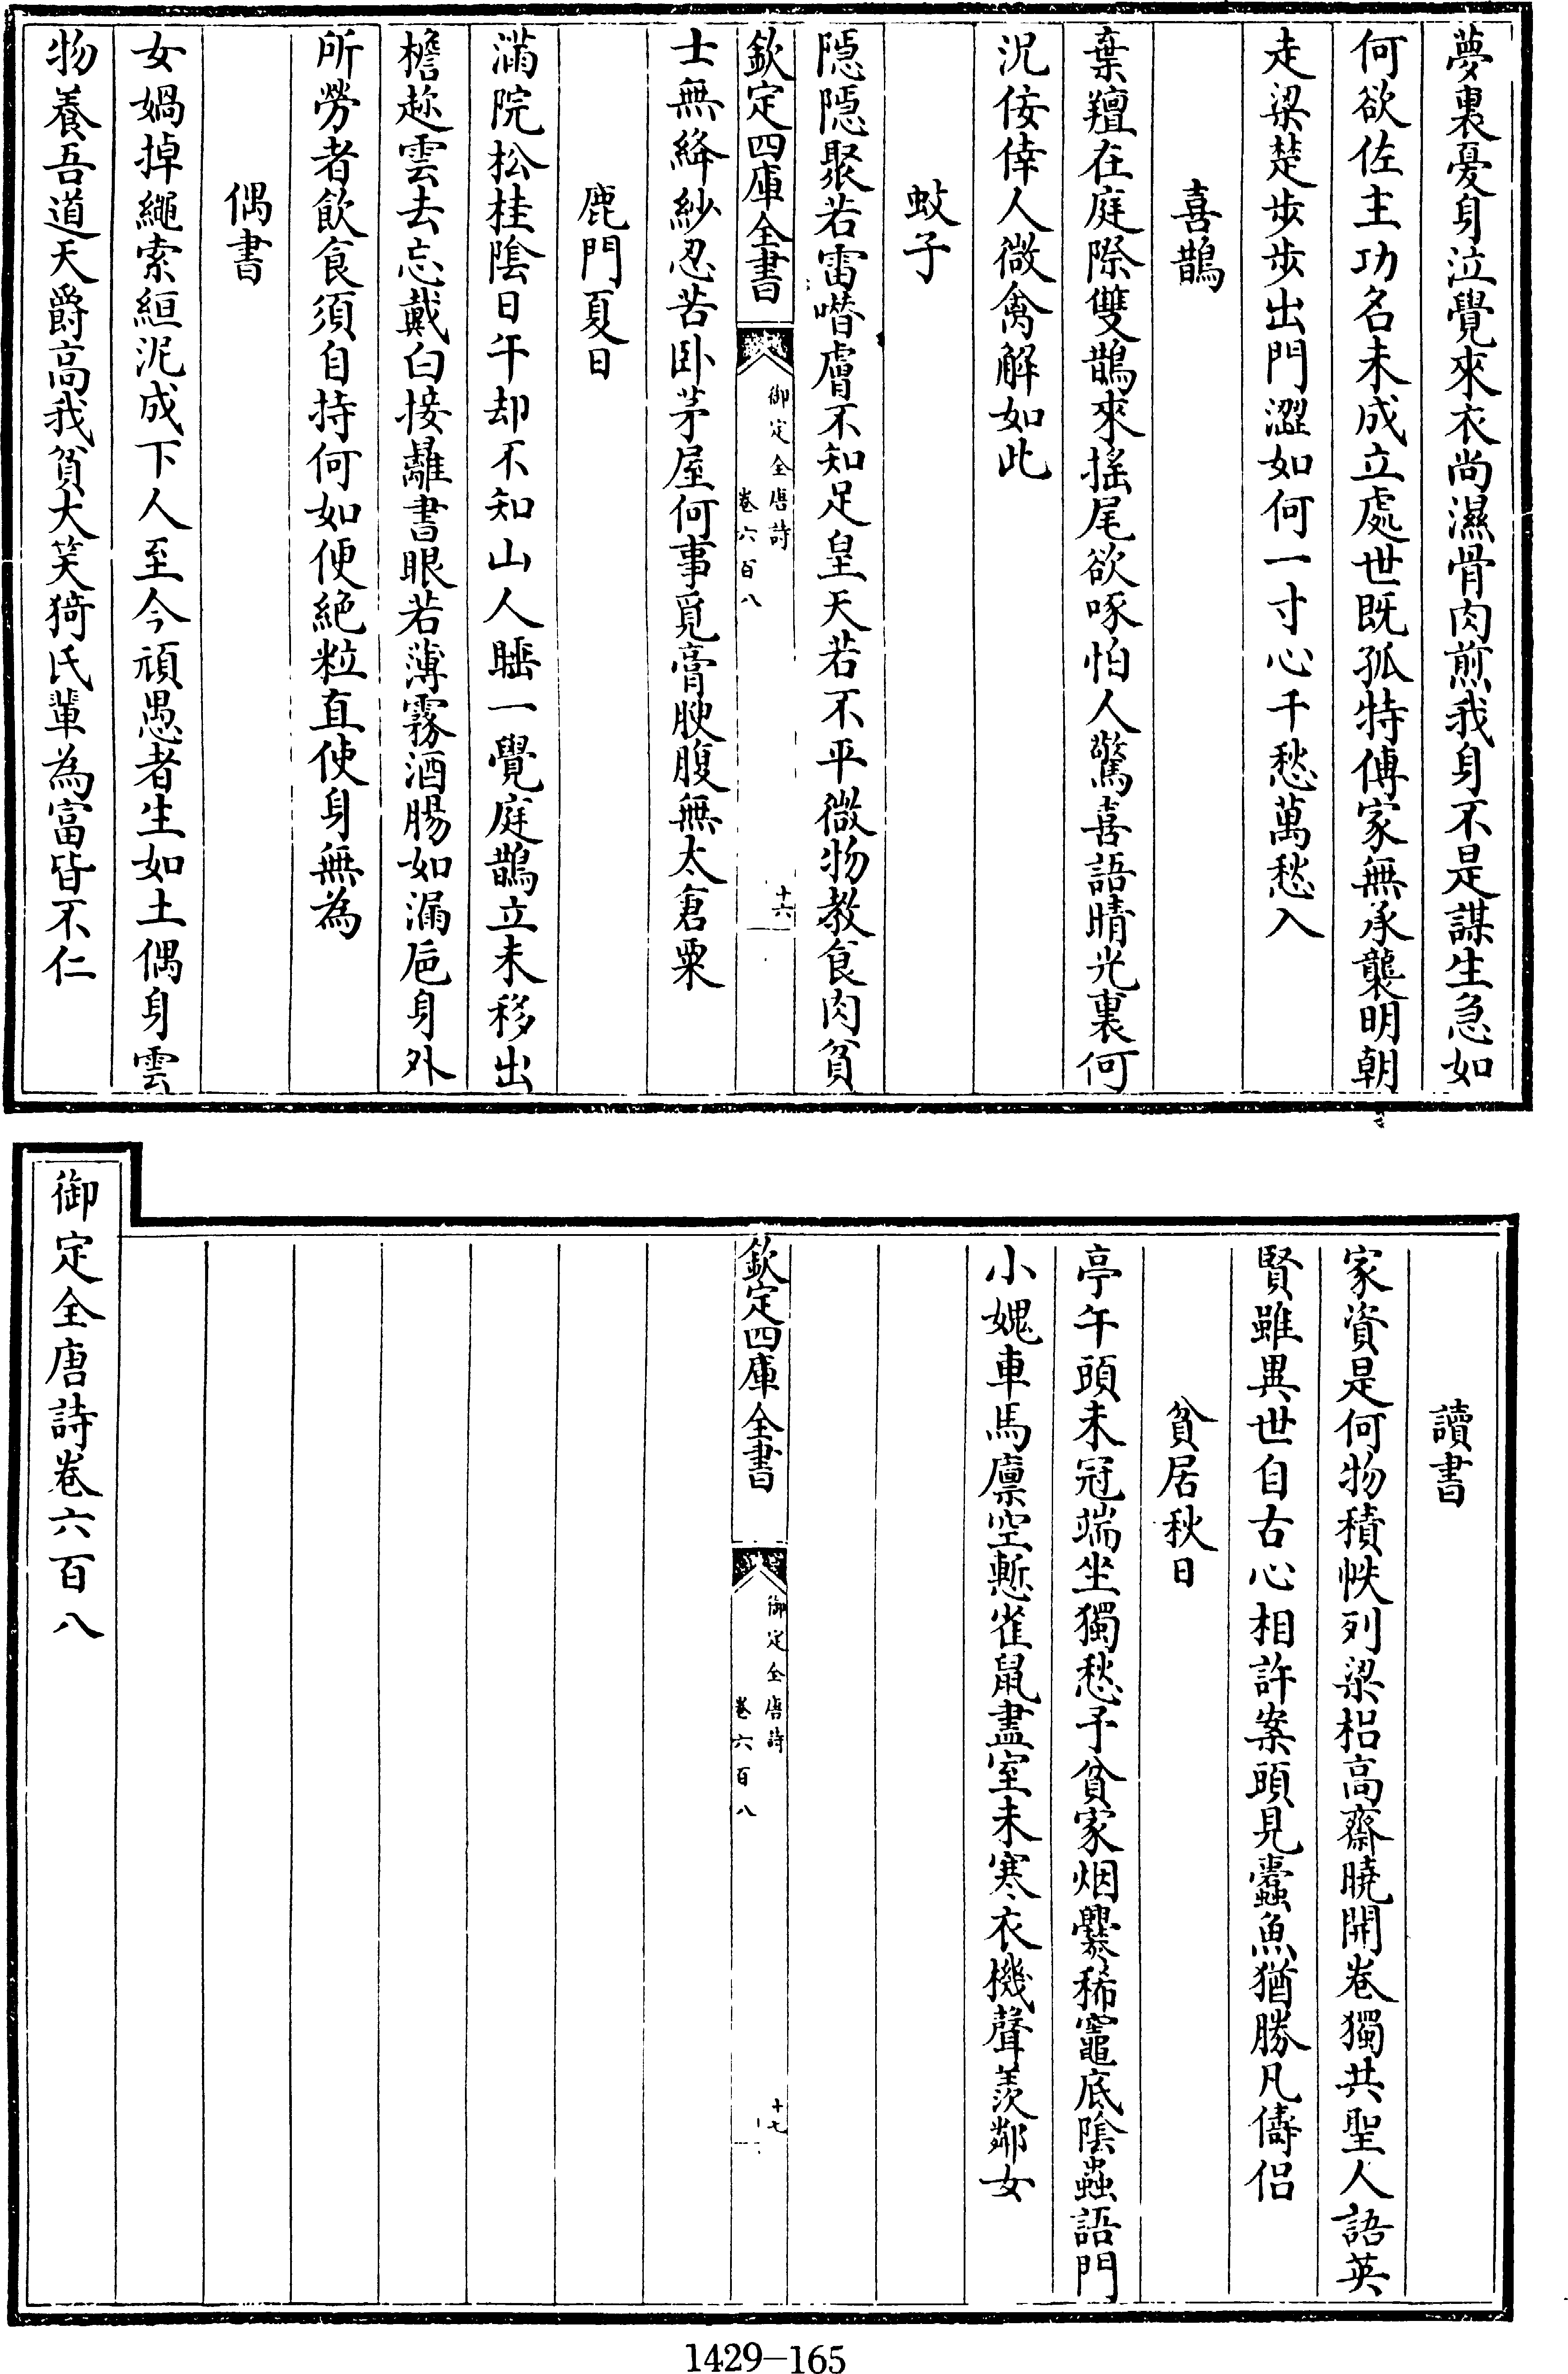 夢裏憂身泣覺來衣尚濕骨肉煎我身不是謀生急如
何欲佐主功名未成立處世既孤特傳家無承襲明朝
走梁楚步步出門澀如何一寸心千愁萬愁入
喜鵲
棄羶在庭際雙鵲來搖尾欲啄怕人驚喜語晴光裏何
況佞倖人微禽解如此
蚊子
隠隠聚若雷噆膚不知足皇天若不平微物教食肉貧
欽定四庫全書
御定全唐詩
卷六百八
十六
士無絳紗忍苦卧茅屋何事覓膏腴腹無太倉粟
鹿門夏日
滿院松桂陰日午却不知山人睡一覺庭鵲立未移出
檐趂雲去忘戴白接䍦書眼若薄霧酒腸如漏巵身外
所勞者飲食須自持何如便絶粒直使身無為
偶書
女媧掉繩索絙泥成下人至今頑愚者生如土偶身雲
物養吾道天爵高我貧大笑猗氏輩為富皆不仁
讀書
家資是何物積帙列梁梠高齋曉開卷獨共聖人語英
賢雖異世自古心相許案頭見蠹魚猶勝凡儔侣
貧居秋日
亭午頭未冠端坐獨愁予貧家烟爨稀竈底陰蟲語門
小媿車馬廪空慙雀鼠盡室未寒衣機聲羨鄰女
欽定四庫全書
御定全唐詩
卷六百八
十七
御定全唐詩卷六百八
1429-165